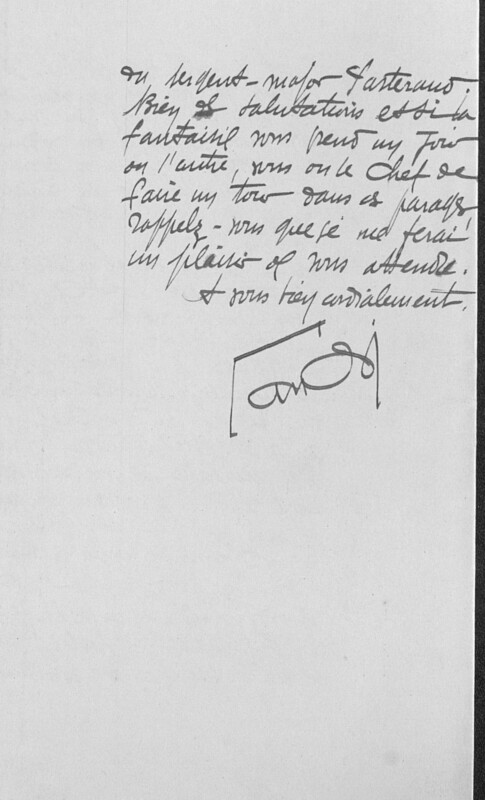 du sergent-major Farteraud.
Bien de salutations et si la
fantaisie vous prend un jour
ou l'autre, vous ou le Chef de
faire un tour dans ces parages
rappelez-vous que je me ferai
un plaisir de vous attendre.
A vous bien cordialement.